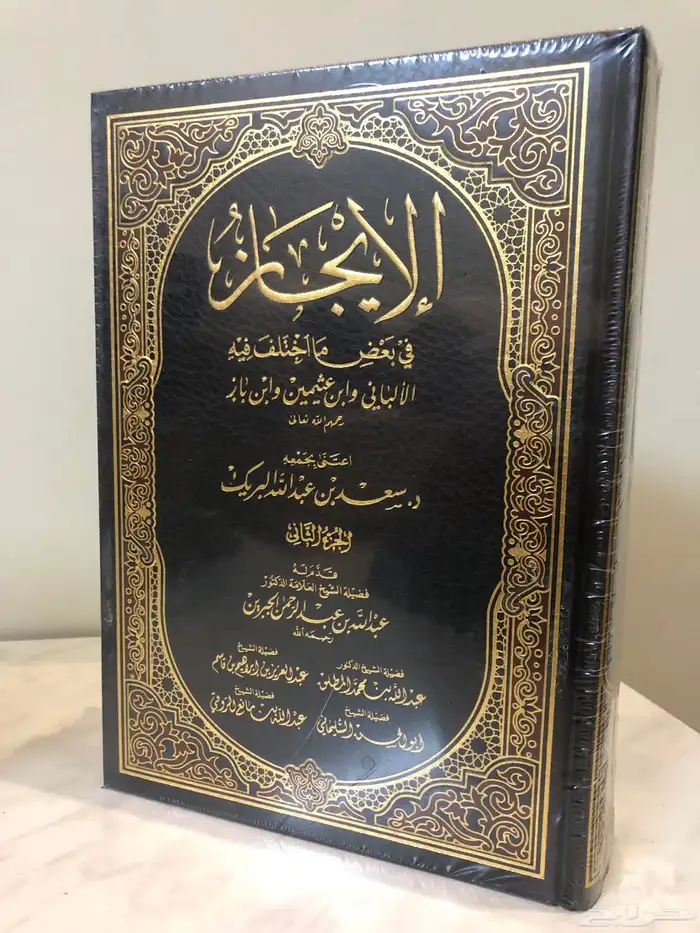 الإيجاز
في بعض ما اختلف فيه
الألباني وابن عثيمين وابن باز
رحمهم الله تعالى
اعتنى بجمعه
د. سعد بن عبد الله البريك
الجزء الثاني
قدم له
فضيلة الشيخ العلامة الدكتور
عبد الله بن عبد الرحمن الجبرين
رحمه الله
فضيلة الشيخ الدكتور
عبد الله بن محمد المطلق
فضيلة الشيخ
عبد العزيز بن إبراهيم بن قاسم
فضيلة الشيخ
أبو الحسن السليماني
فضيلة الشيخ
عبد الله بن مانع الروقي
حراج